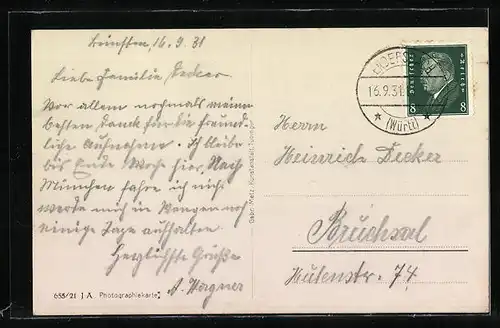 16.9.31
Liebe Familie Decker
Vor allem nochmals meinen
besten Dank für die freund-
liche Aufnahme. Ich bleibe
bis Ende Woche hier. Nach
München fahre ich nicht
werde mich in Wangen noch
einige Tage aufhalten
Herzlichste Grüße
A. Wagner
655/21 J.A. Photographiekarte
Gebr. Metz, Kunstanstalt, Tübingen
16.9.31
* (Württ) *
DEUTSCHES REICH
8 8
Herrn
Heinrich Decker
Bruchsal
Huttenstr. 74